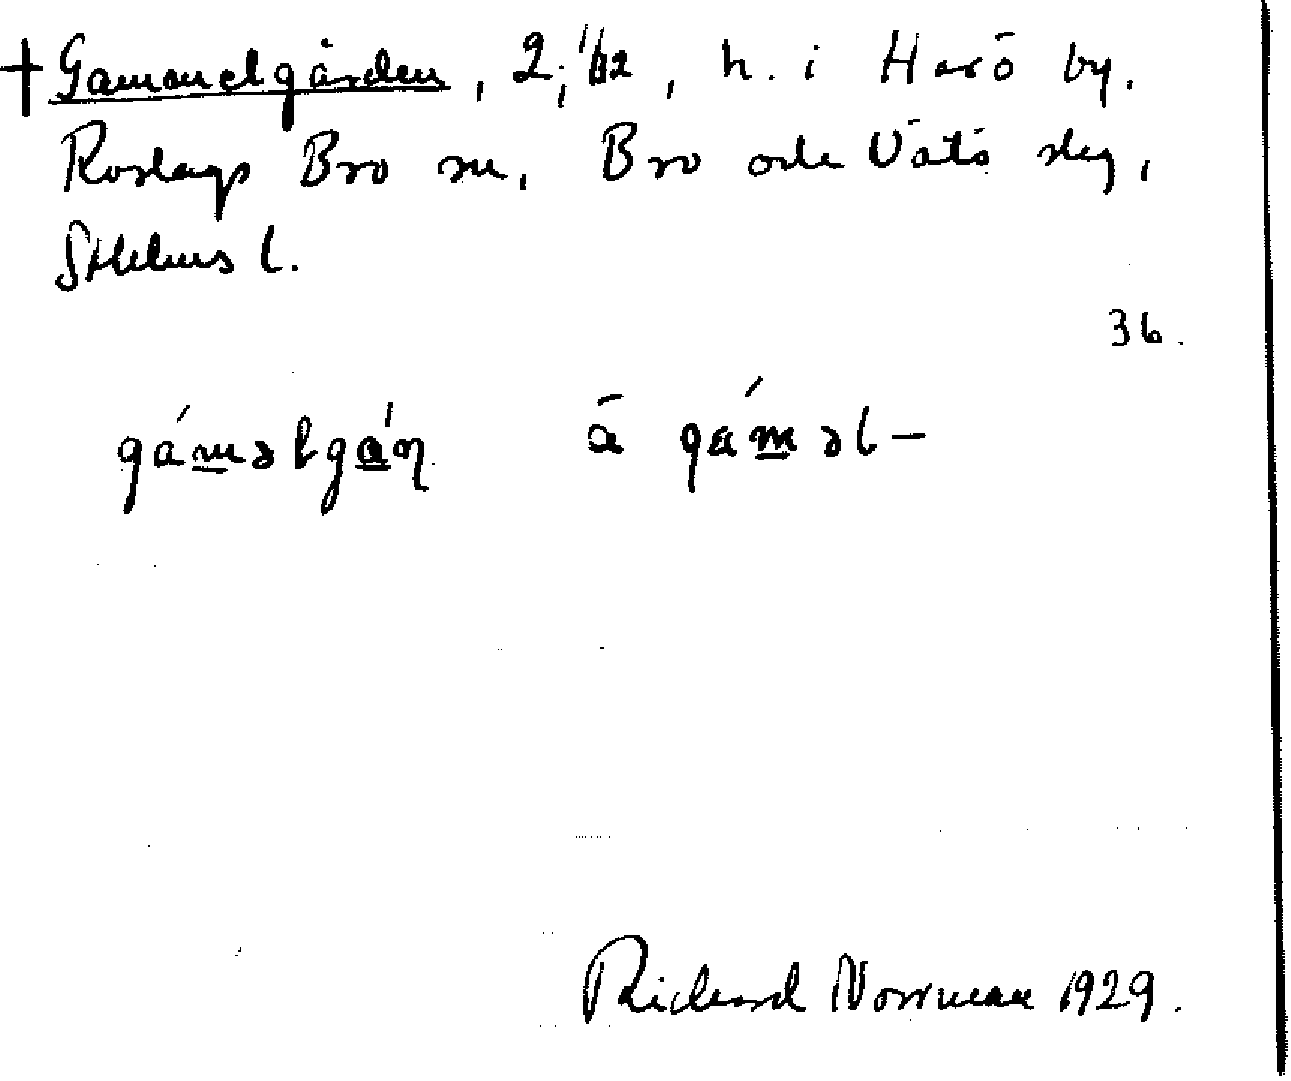 † Gammelgården, 2, 1/12, h. i Harö by.
Roslags Bro sn, Bro och Vätö slg,
Sthlms l.
36.
gáməlgáɳ å gáməl–
Richard Norrman 1929.